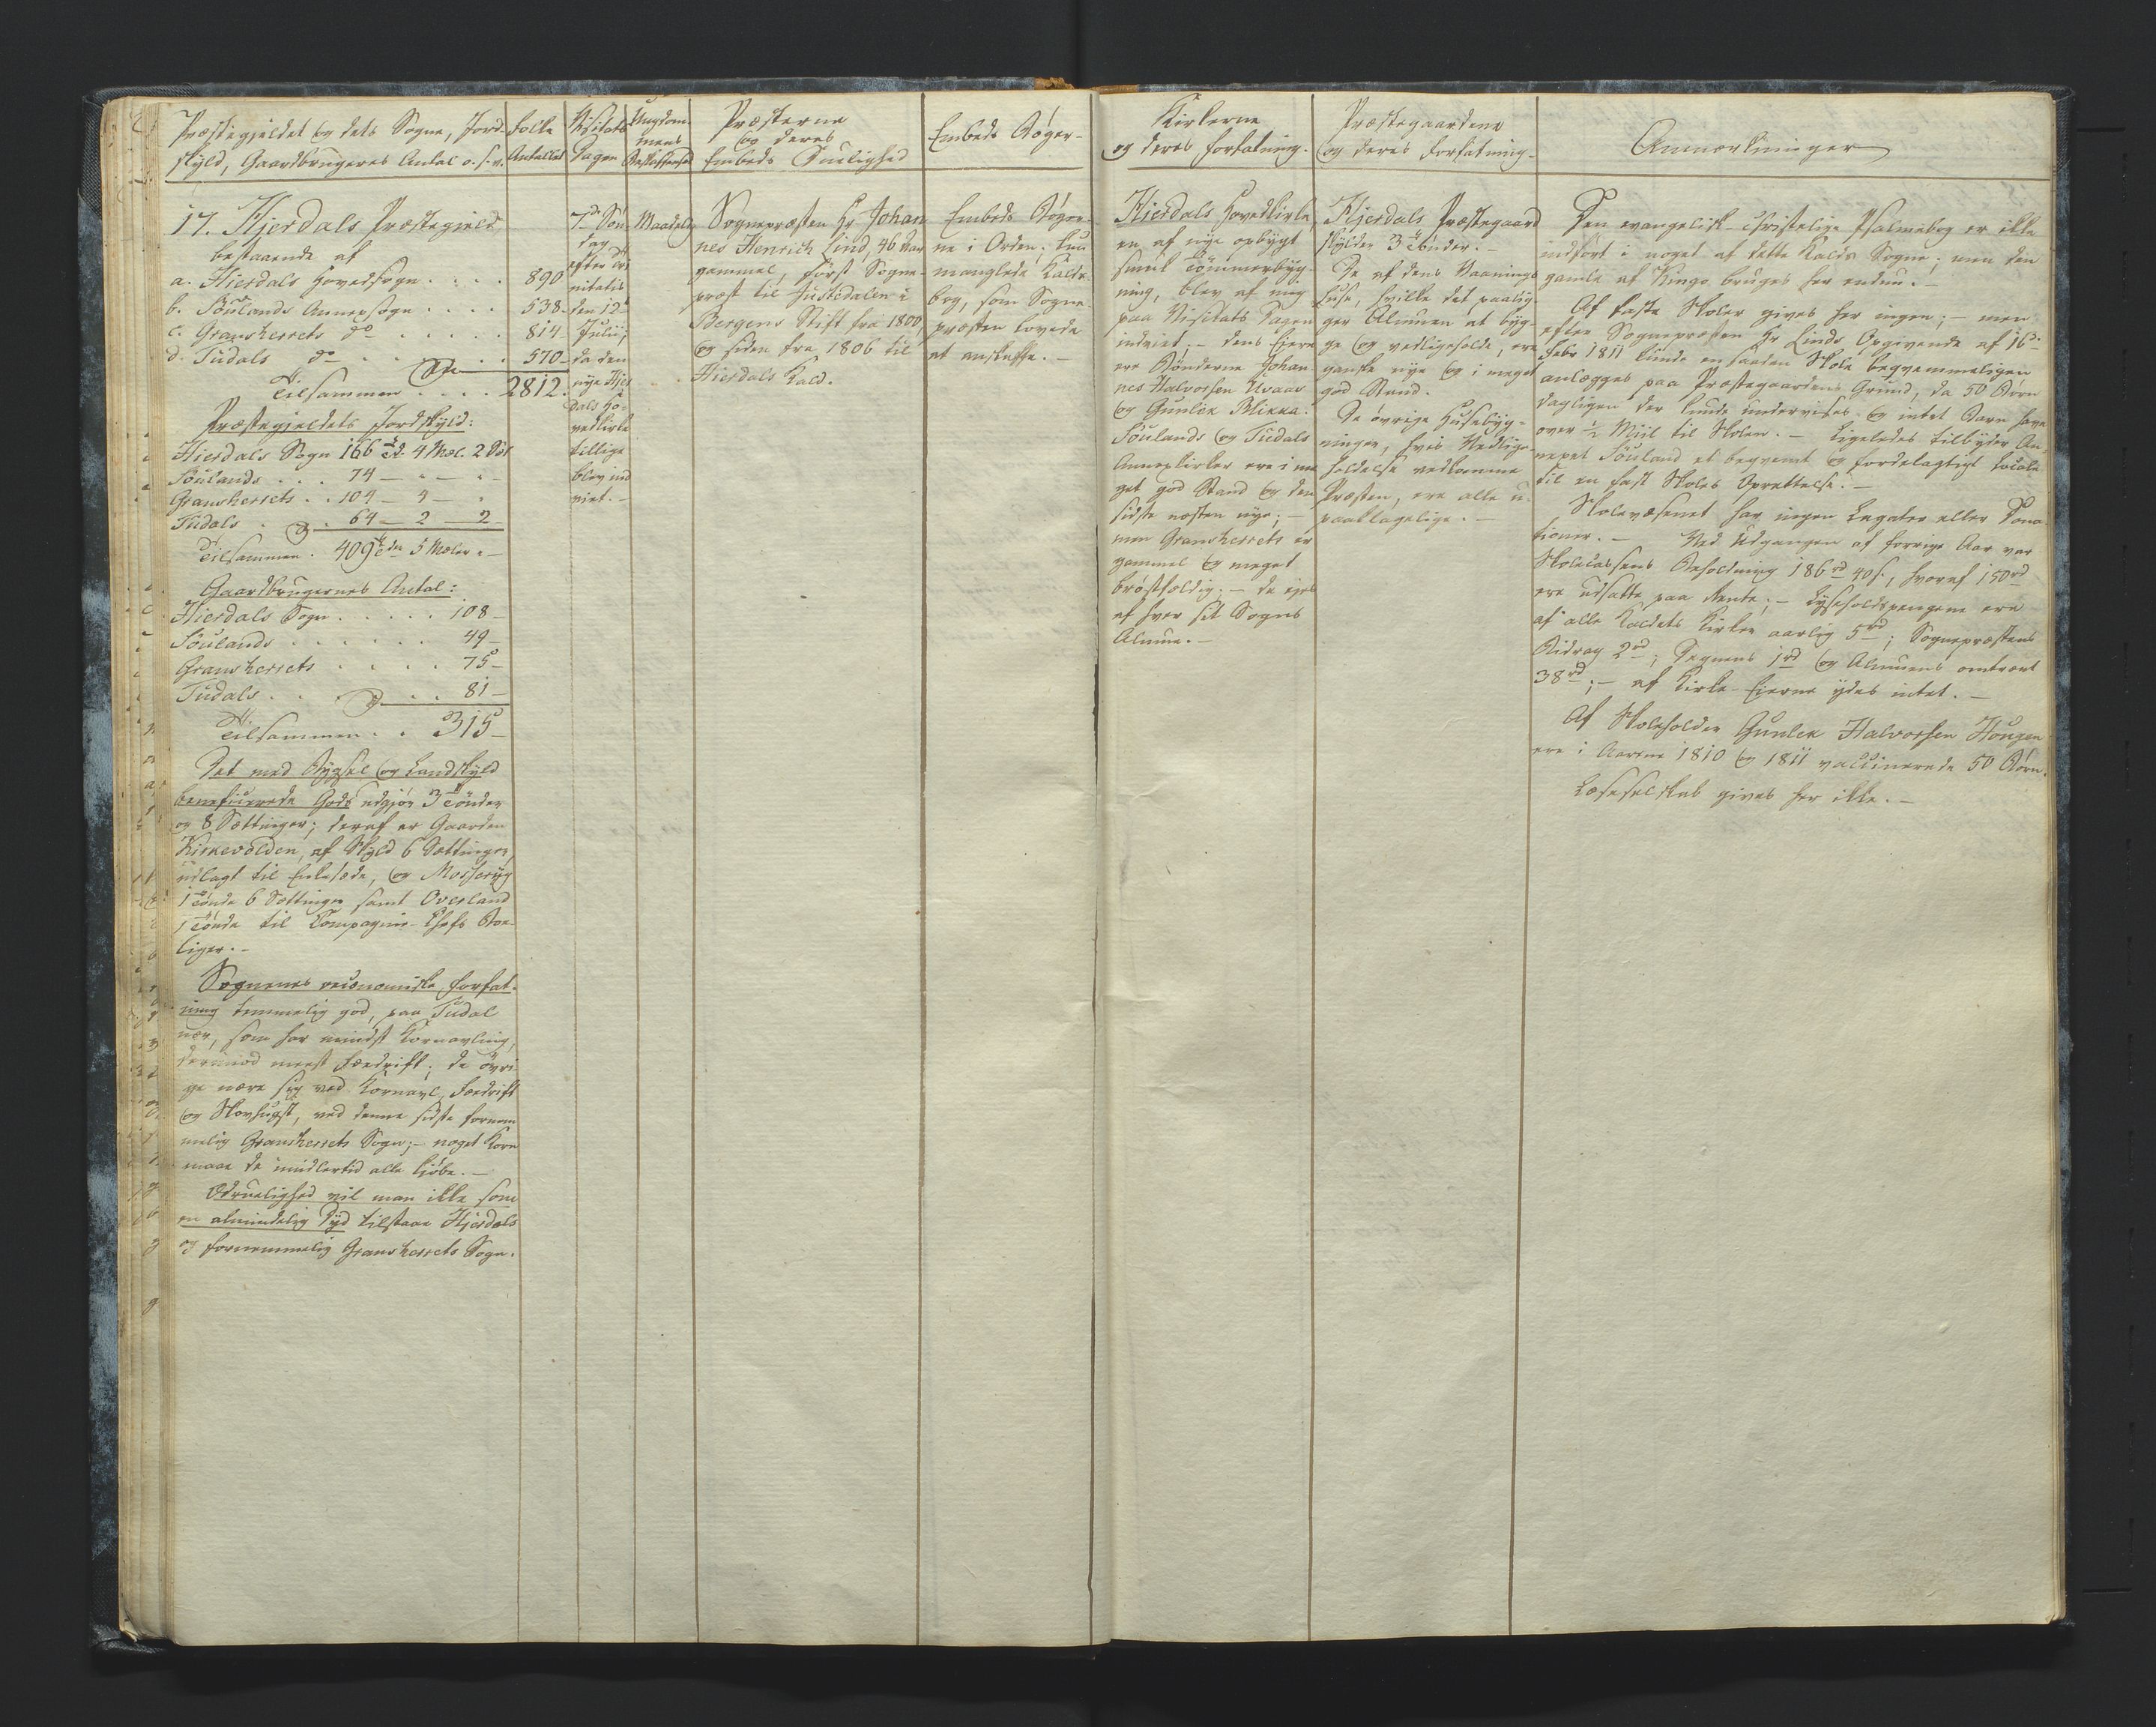 Præstegjeldet og dets Sogne, Jord-
skyld, Gaardbrugeres Antal o. s. v.
Folke
Antallet
Visitats
Dagen
Ungdom-
mens
Beskaffenhed
Præsterne
og deres
Embeds Duelighed
Embeds Bøger-
17. Hjerdals Præstegield
bestaaende af
a. Hierdals Hovedsogn . . . . 890
b. Soulands Annexsogn . . . . 538-
c. Gransherrets do . . . . . 814-
d. Tudals do . . . . . 570-
Tilsammen . . . . 2812.
Præstegjeldets Jordskyld:
Hierdals Sogn 166 Td. 4 Mæl. 2
Soulands . . . 74 — " — " -
Gransherrets . . 104 — 4 — "
Tudals . . . 64 — 2 — 2 -
Tilsammen . 409 Tdr 5 Mæler " —
Gaardbrugernes Antal:
Hierdals Sogn . . . . . 108 -
Soulands . . . . . . 49 -
Gransherrets . . . . . 75 -
Tudals . . . . . 81 -
Tilsammen . . 315 -
Det med Bygsel og Landskyld
beneficerede Gods udgjør 3 Tönder
og 8 Sættinger; deraf er Gaarden
Kirkevolden, af Skyld 6 Sættinger,
udlagt til Enkesæde, og Mosserüg
1 Tönde 6 Sættinger samt Overland
1 Tönde til Compagnie-Chefs Boe-
liger. -
Sognenes oeconomiske Forfat-
ning temmelig god, paa Tudal
nær, som har mindst Kornavling,
derimod meest Fædrift; de övri-
ge nære sig ved Kornavl, Fædrift
og Skovhugst, ved denne sidste fornem-
melig Gransherrets Sogn; - noget Korn
maae de imidlertid alle kiöbe. -
Ædruelighed vil man ikke som
en almindelig Dyd tilstaae Hjerdals
og fornemmelig Gransherrets Sogn.
7de Søn-
dag
efter Tri-
nitatis
den 12te
Julii,
da den
nye Hjer-
dals Ho-
vedkirke
tillige
blev ind-
viet. -
Maadelig
Sognepræsten Hr Johan-
nes Henrich Lind, 46 Aar
gammel, først Sogne-
præst til Justedalen i
Bergens Stift fra 1800,
og siden fra 1806 til
Hierdals Kald.
Embeds Bøger-
ne i Orden; kun
manglede Kalds-
bog, som Sogne-
præsten lovede
at anskaffe. -
Kirkerne
og deres Forfatning.
Præstegaardene
og deres Forfatning-
Anmærkninger
Hierdals Hovedkirke,
en af nye opbygt
smuk Tömmerbyg-
ning, blev af mig
paa Visitats Dagen
indviet; - dens Eiere
ere Bönderne Johan-
nes Halvorsen Uvaas
og Gunlek Blikka.
Soulands og Tudals
Annexkirker ere i me-
get god Stand og den
sidste næsten nye; -
men Gransherrets er
gammel og meget
bröstfoldig; - de ejes
af hver sit Sogns
Almue. -
Hjerdals Præstegaard
skylder 3 Tönder. -
De af dens Vaanings
Huse, hvilke det paalig-
ger Almuen at byg-
ge og vedligeholde, ere
ganske nye og i meget
god Stand.
De övrige Huusebyg-
ninger, hvis Vedlige-
holdelse vedkomme
Præsten, ere alle u-
paaklagelige. -
Den evangelisk-christelige Psalmebog er ikke
indfört i noget af dette Kalds Sogne; men den
gamle af Kingo bruges her endnu. -
Af faste Skoler gives her ingen; - men
efter Sognepræsten Hr Linds Opgivende af 16de
Febr 1811 kunde en saadan Skole beqvemmeligen
anlægges paa Præstegaardens Grund, da 50 Börn
dagligen der kunde undervises og intet Barn have
over ½ Miil til Skolen. - Ligeledes tilbyder An-
nexet Souland et beqvemt og fordelagtigt Locale
til en fast Skoles Oprettelse. -
Skolevæsenet har ingen Legater eller Dona-
tioner. - Ved Udgangen af forrige Aar var
Skolecassens Beholdning 186 rd 40 s., hvoraf 150 rd
ere udsatte paa Rente; - Lyseholdspengene ere
af alle Kaldets Kirker aarlig 5 rd; Sognepræstens
Bidrag 2 rd; Degnens 1 rd og Almuens omtrent
38 rd; - af Kirke-Eierne ydes intet. -
Af Skoleholder Gunlek Halvorsen Hougen
ere i Aarene 1810 og 1811 vaccinerede 50 Börn.
Læseselskab gives her ikke. -